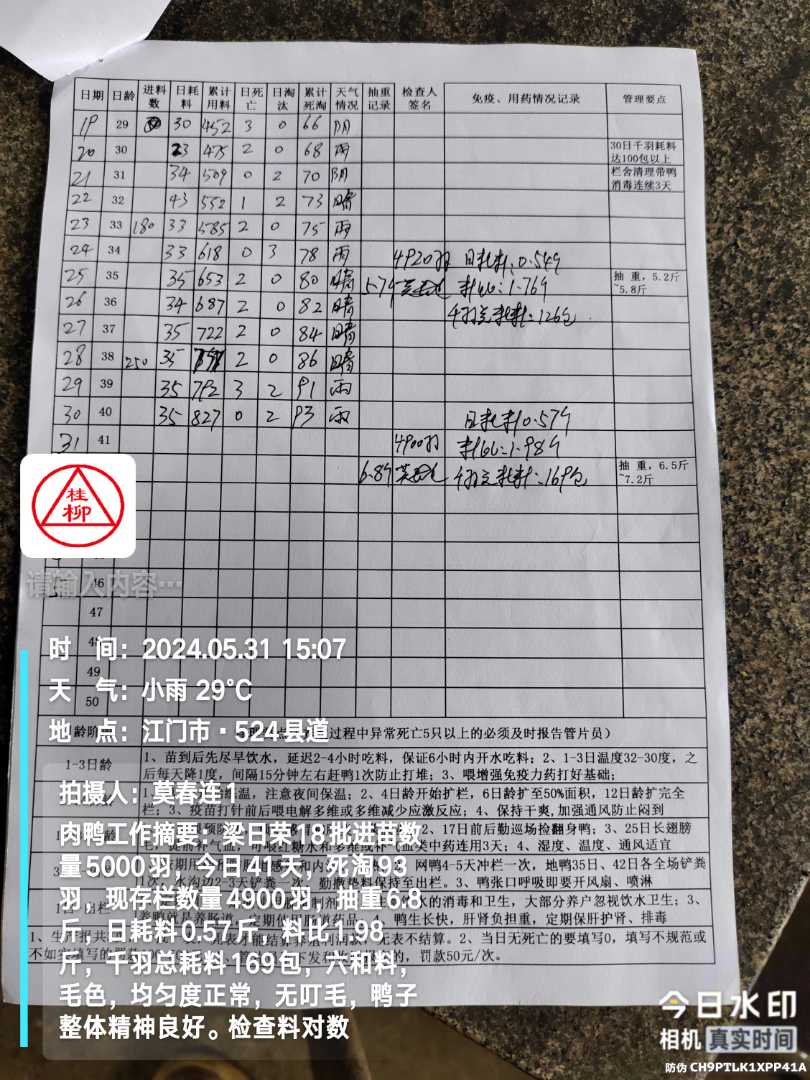 日期 日龄 进料数 日耗料 累计用料 日死亡 日淘汰 累计死淘 天气情况 抽重记录 检查人签名 免疫、用药情况记录 管理要点
19 29 30 452 3 0 66 阴
20 30 23 475 2 0 68 雨 30日千羽耗料达100包以上
21 31 34 509 0 2 70 阴 栏舍清理带鸭消毒连续3天
22 32 43 552 1 2 73 晴
23 33 180 33 585 2 0 75 雨
24 34 33 618 0 3 78 雨 4920羽 日耗料:0.54斤
25 35 35 653 2 0 80 晴 5.7斤 料比:1.76斤 抽重,5.2斤~5.8斤
26 36 34 687 2 0 82 晴 千羽总耗料:126包
27 37 35 722 2 0 84 晴
28 38 250 35 2 0 86 晴
29 39 35 792 3 2 91 雨
30 40 35 827 0 2 93 雨 日耗料0.57斤
31 41 4900羽 料比:1.98斤
6.8斤 千羽总耗料:169包 抽重,6.5斤~7.2斤
桂柳
请输入内容…
46
47
48
49
50
时 间:2024.05.31 15:07
天 气:小雨 29°C
地 点:江门市·524县道
过程中异常死亡5只以上的必须及时报告管片员)
1-3日龄 1、苗到后先尽早饮水,延迟2-4小时吃料,保证6小时内开水吃料;2、1-3日温度32-30度,之后每天降1度,间隔15分钟左右赶鸭1次防止打堆;3、喂增强免疫力药打好基础;
温,注意夜间保温;2、4日龄开始扩栏,6日龄扩至50%面积,12日龄扩完全栏;3、疫苗打针前后喂电解多维或多维减少应激反应;4、保持干爽,加强通风防止闷到
拍摄人:莫春连1
肉鸭工作摘要:梁日荣18批进苗数
量5000羽,今日41天,死淘93
羽,现存栏数量4900羽,抽重6.8
斤,日耗料0.57斤,料比1.98
斤,千羽总耗料169包,六和料,
毛色,均匀度正常,无叮毛,鸭子
整体精神良好。检查料对数
2、17日前后勤巡场捡翻身鸭;3、25日长翅膀
中药连用3天;4、湿度、温度、通风适宜
网鸭4-5天冲栏一次,地鸭35日、42日各全场铲粪
3、鸭张口呼吸即要开风扇、喷淋
水的消毒和卫生,大部分养户忽视饮水卫生;3、
4、鸭生长快,肝肾负担重,定期保肝护肾、排毒
无表不结算。2、当日无死亡的要填写0,填写不规范或
罚款50元/次。
今日水印
相机 真实时间
防伪 CH9PTLK1XPP41A